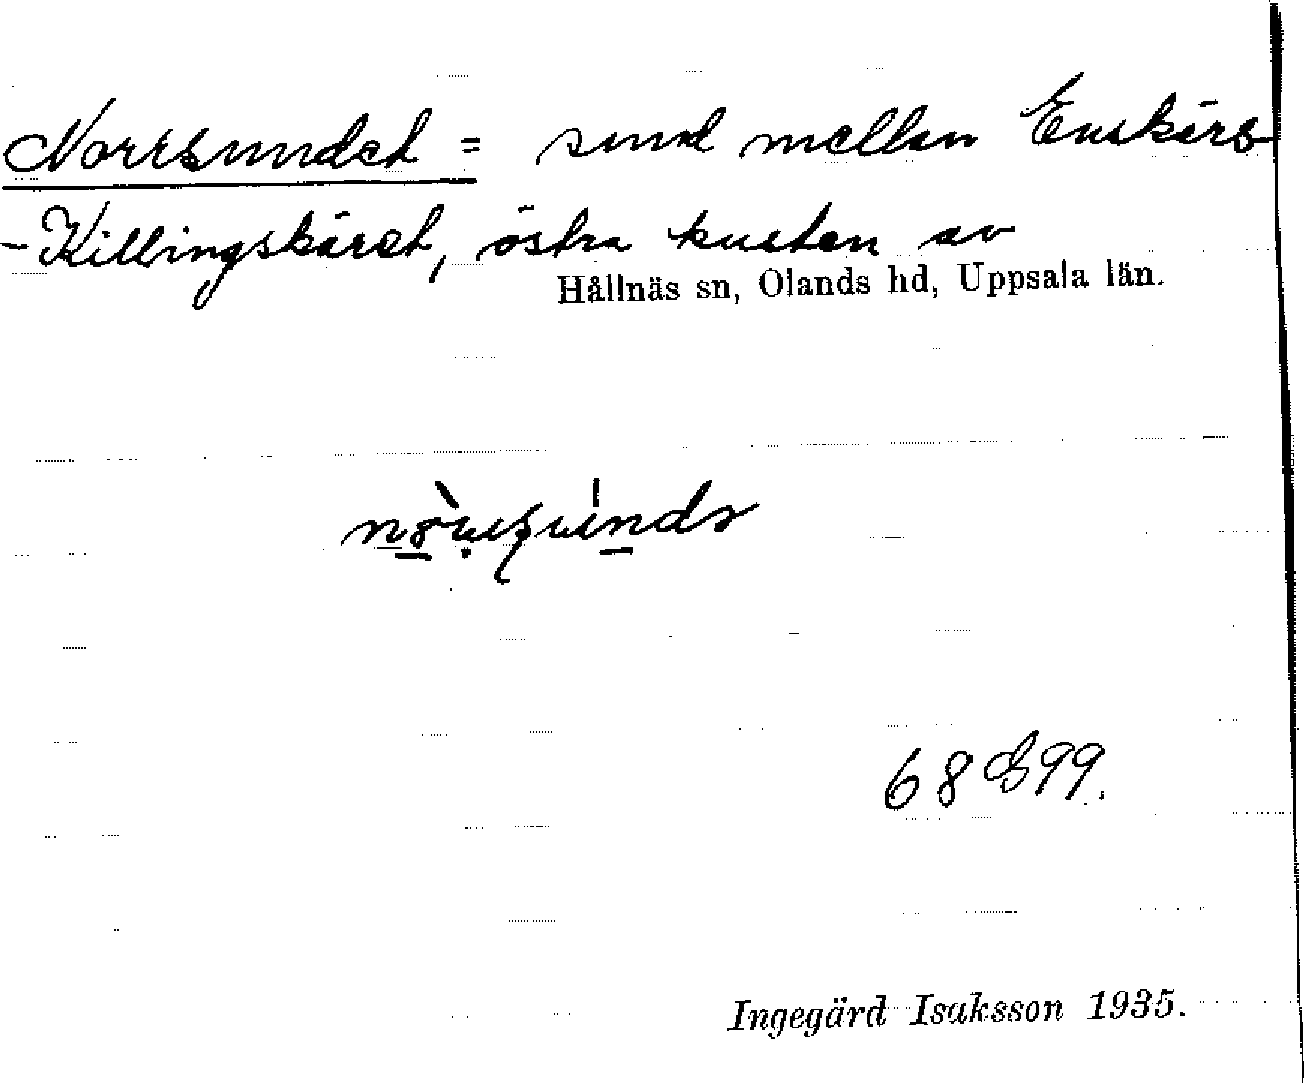 Norrsundet = sund mellan Enskärs
-Killingskäret, östra kusten av
Hållnäs sn, Olands hd, Uppsala län.
68 B 99.
Ingegärd Isaksson 1935.